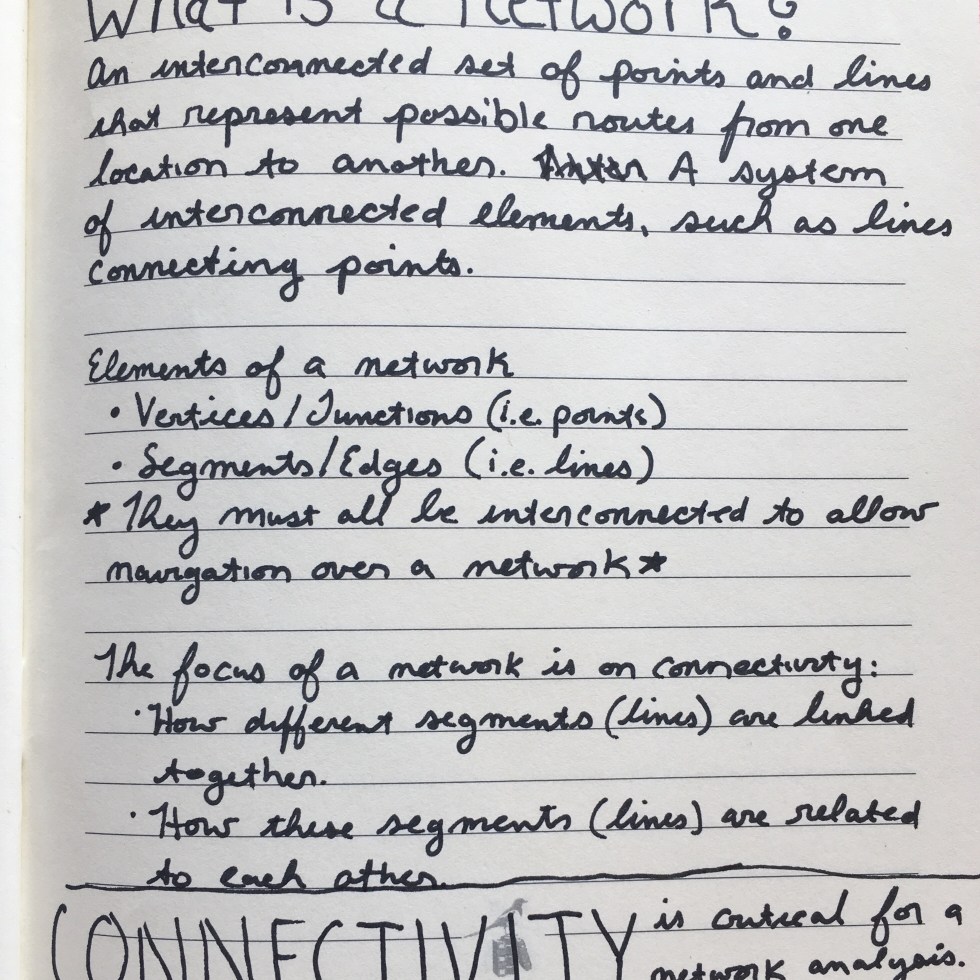 What is a Network?
An interconnected set of points and lines
that represent possible routes from one
location to another. A system
of interconnected elements, such as lines
connecting points.
Elements of a network
• Vertices/Junctions (i.e. points)
• Segments/Edges (i.e. lines)
* They must all be interconnected to allow
navigation over a network *
The focus of a network is on connectivity:
· How different segments (lines) are linked
together.
· How these segments (lines) are related
to each other.
CONNECTIVITY is critical for a
network analysis.